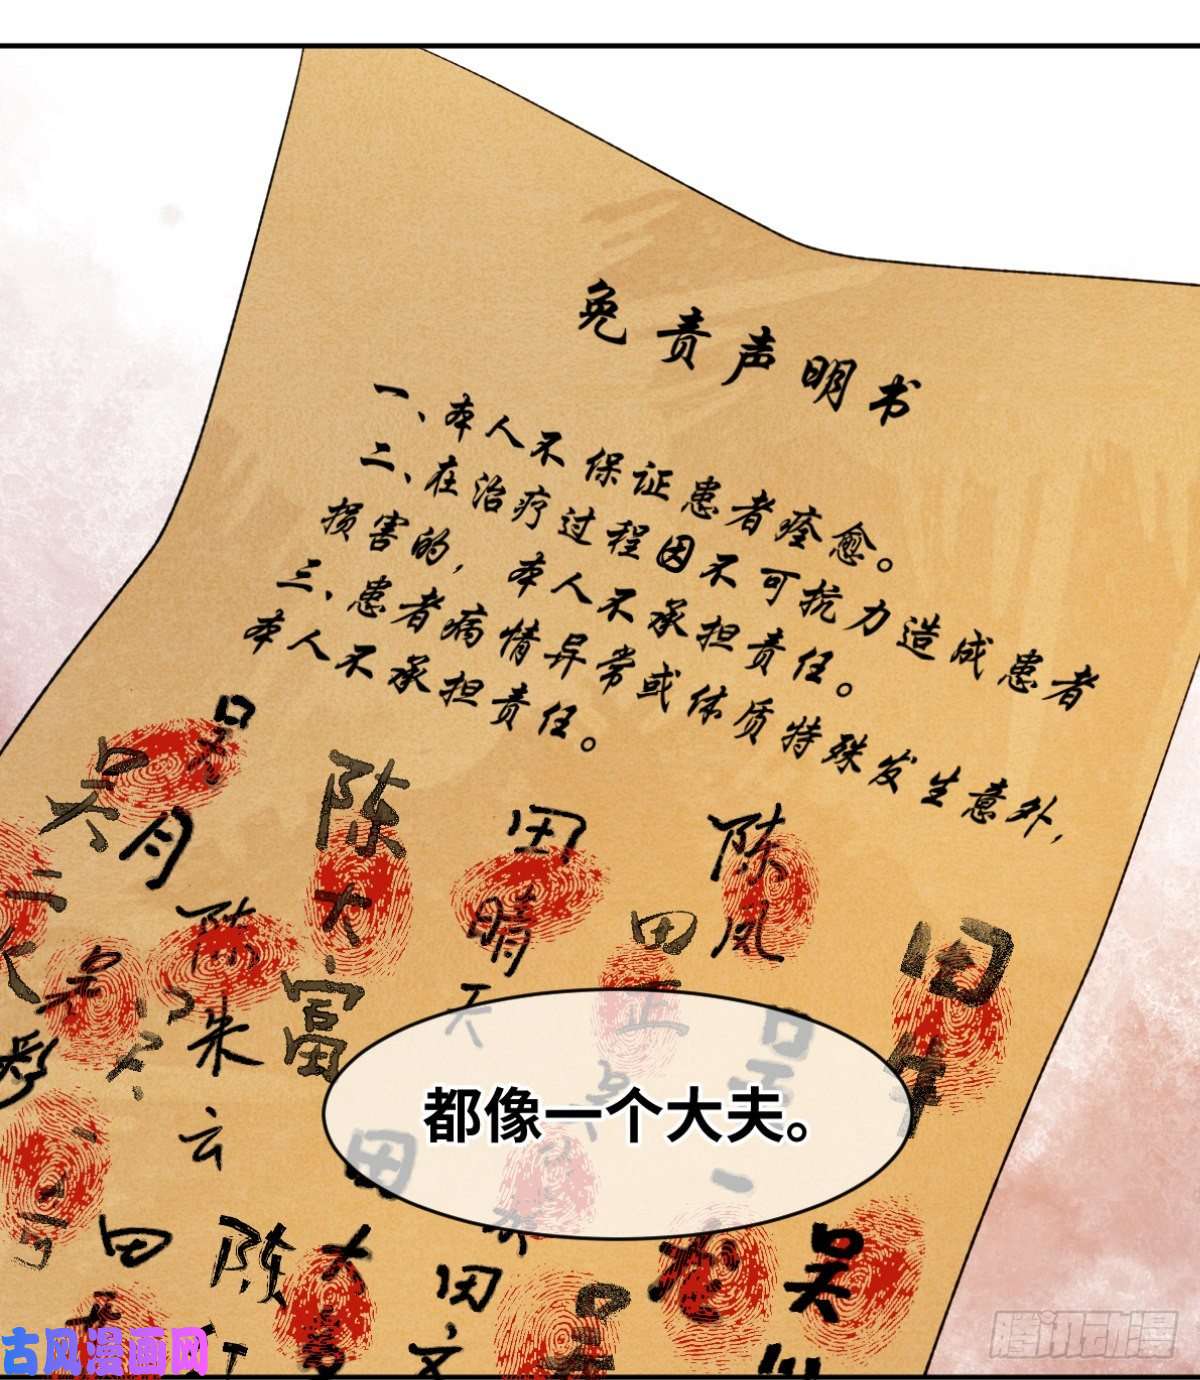 免责声明书
一、本人不保证患者痊愈。
二、在治疗过程因不可抗力造成患者
损害的，本人不承担责任。
三、患者病情异常或体质特殊发生意外，
本人不承担责任。
吴月
陈大富
田晴天
陈凤
田正
田生
陈朱云
都像一个大夫。
田
陈
田文
吴
古风漫画网
腾讯动漫